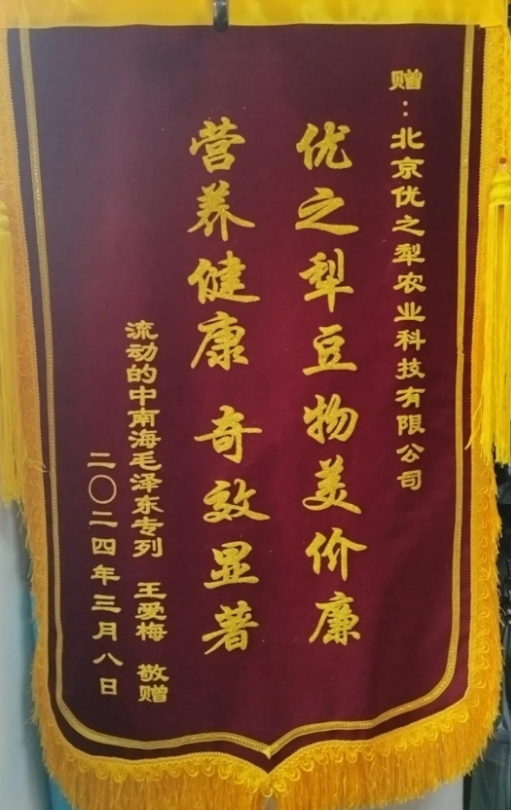 赠：北京优之犁农业科技有限公司
优之犁豆物美价廉
营养健康 奇效显著
流动的中南海毛泽东专列 王爱梅 敬赠
二〇二四年三月八日